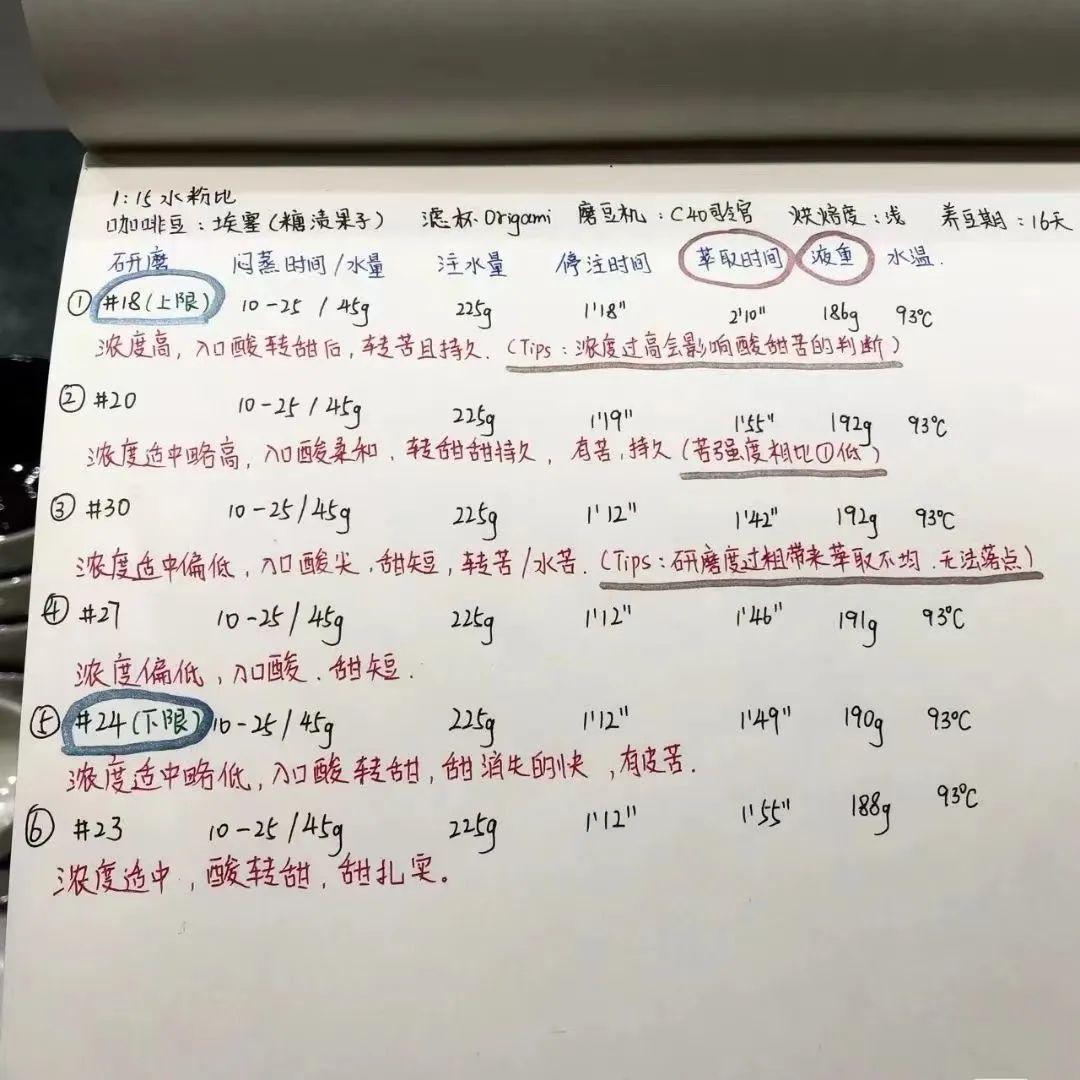 1:15水粉比
咖啡豆:埃塞(糖渍果子) 滤杯Origami 磨豆机:C40司令官 烘焙度:浅 养豆期:16天
研磨 闷蒸时间/水量 注水量 停注时间 萃取时间 液重 水温.
① #18(上限) 10-25/45g 225g 1'18" 2'10" 186g 93℃
浓度高,入口酸转甜后,转苦且持久.(Tips:浓度过高会影响酸甜苦的判断)
② #20 10-25/45g 225g 1'19" 1'55" 192g 93℃
浓度适中略高,入口酸柔和,转甜甜持久,有苦,持久(苦强度相比①低)
③ #30 10-25/45g 225g 1'12" 1'42" 192g 93℃
浓度适中偏低,入口酸尖.甜短,转苦/水苦.(Tips:研磨度过粗带来萃取不均.无法落点)
④ #27 10-25/45g 225g 1'12" 1'46" 191g 93℃
浓度偏低,入口酸.甜短.
⑤ #24(下限) 10-25/45g 225g 1'12" 1'49" 190g 93℃
浓度适中略低,入口酸转甜,甜消失的快,有皮苦.
⑥ #23 10-25/45g 225g 1'12" 1'55" 188g 93℃
浓度适中,酸转甜,甜扎实。